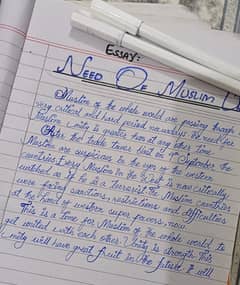 ESSAY:
NEED OF MUSLIM U
Muslim of the whole world are passing through
very critical and hard period nowadays. The need for
Muslim Unity is greater than at any other time.
After the table times that on 1st September the
Muslim are suspicions in the eyes of the western
countries. Every Muslim in the is now critically
watched as if he is a terrorist. The Muslim countries
were facing sanctions, restrictions and difficulties
at the hand of western super powers now.
This is a time for Muslim of the whole world to
get united with each other. Unity is strength. This
Unity will have great fruit in the future. It will